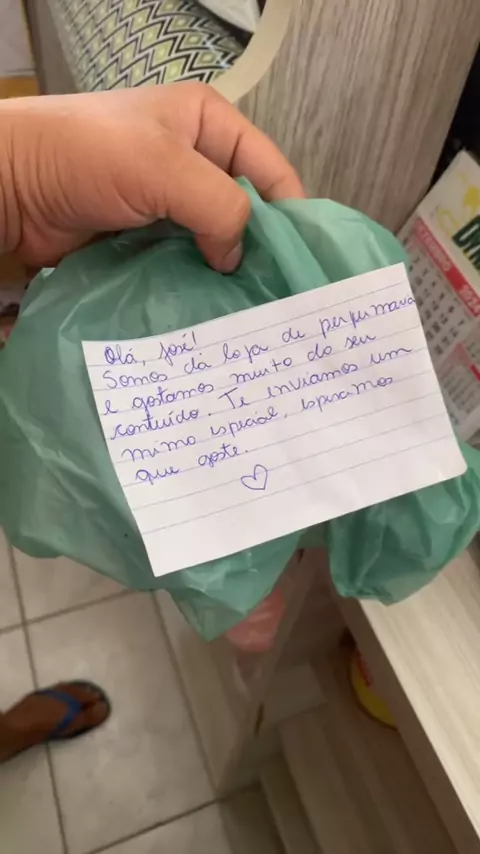 Olá, José!
Somos da loja de perfumaria
e gostamos muito do seu
conteúdo. Te enviamos um
mimo especial, esperamos
que goste.